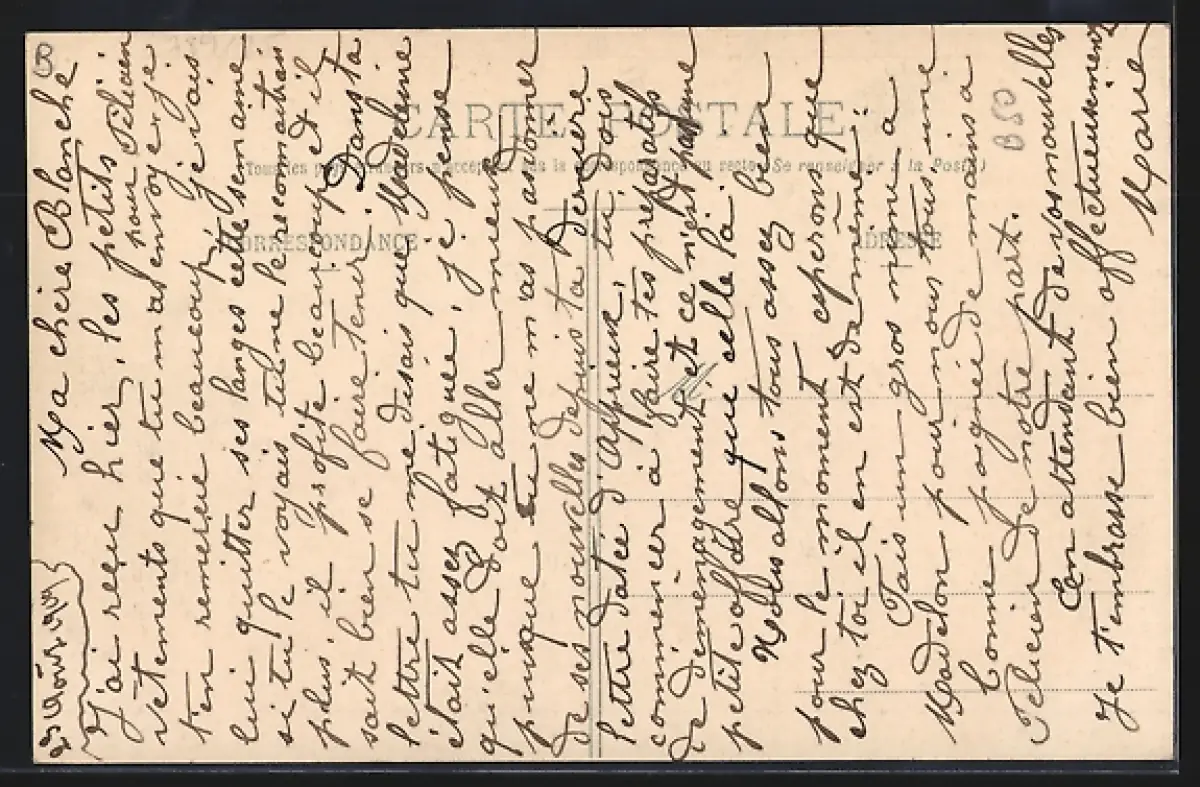 25 Août 1919
Ma chère Blanche
J'ai reçu hier, les petits
vêtements que tu m'as envoyé, je
pour Félicien
t'en remercie beaucoup, je vais
lui quitter ses langes cette semaine
si tu le voyais tu ne le reconnaitrais
plus, il profite beaucoup et il
sait bien se faire tenir. Dans ta
lettre tu me disais que Madeleine
était assez fatiguée, je pense
qu'elle doit aller mieux
puisque tu ne m'as pas donner
de ses nouvelles depuis ta dernière
lettre datée d'
commencer à faire tes préparatifs
de déménagement, et ce n'est pas une
petite affaire que celle là.
Nous allons tous assez bien
pour le moment esperons que
chez toi il en est de même.
Fais un gros mimi a
Madelon pour nous tous, une
bonne poignée de mains à
Félicien de notre part.
En attendant de vos nouvelles
Je t'embrasse bien affectueusement
Marie
CARTE POSTALE
Tous les pays étrangers n'acceptent pas la correspondance au recto (Se renseigner à la Poste)
CORRESPONDANCE
ADRESSE
B50